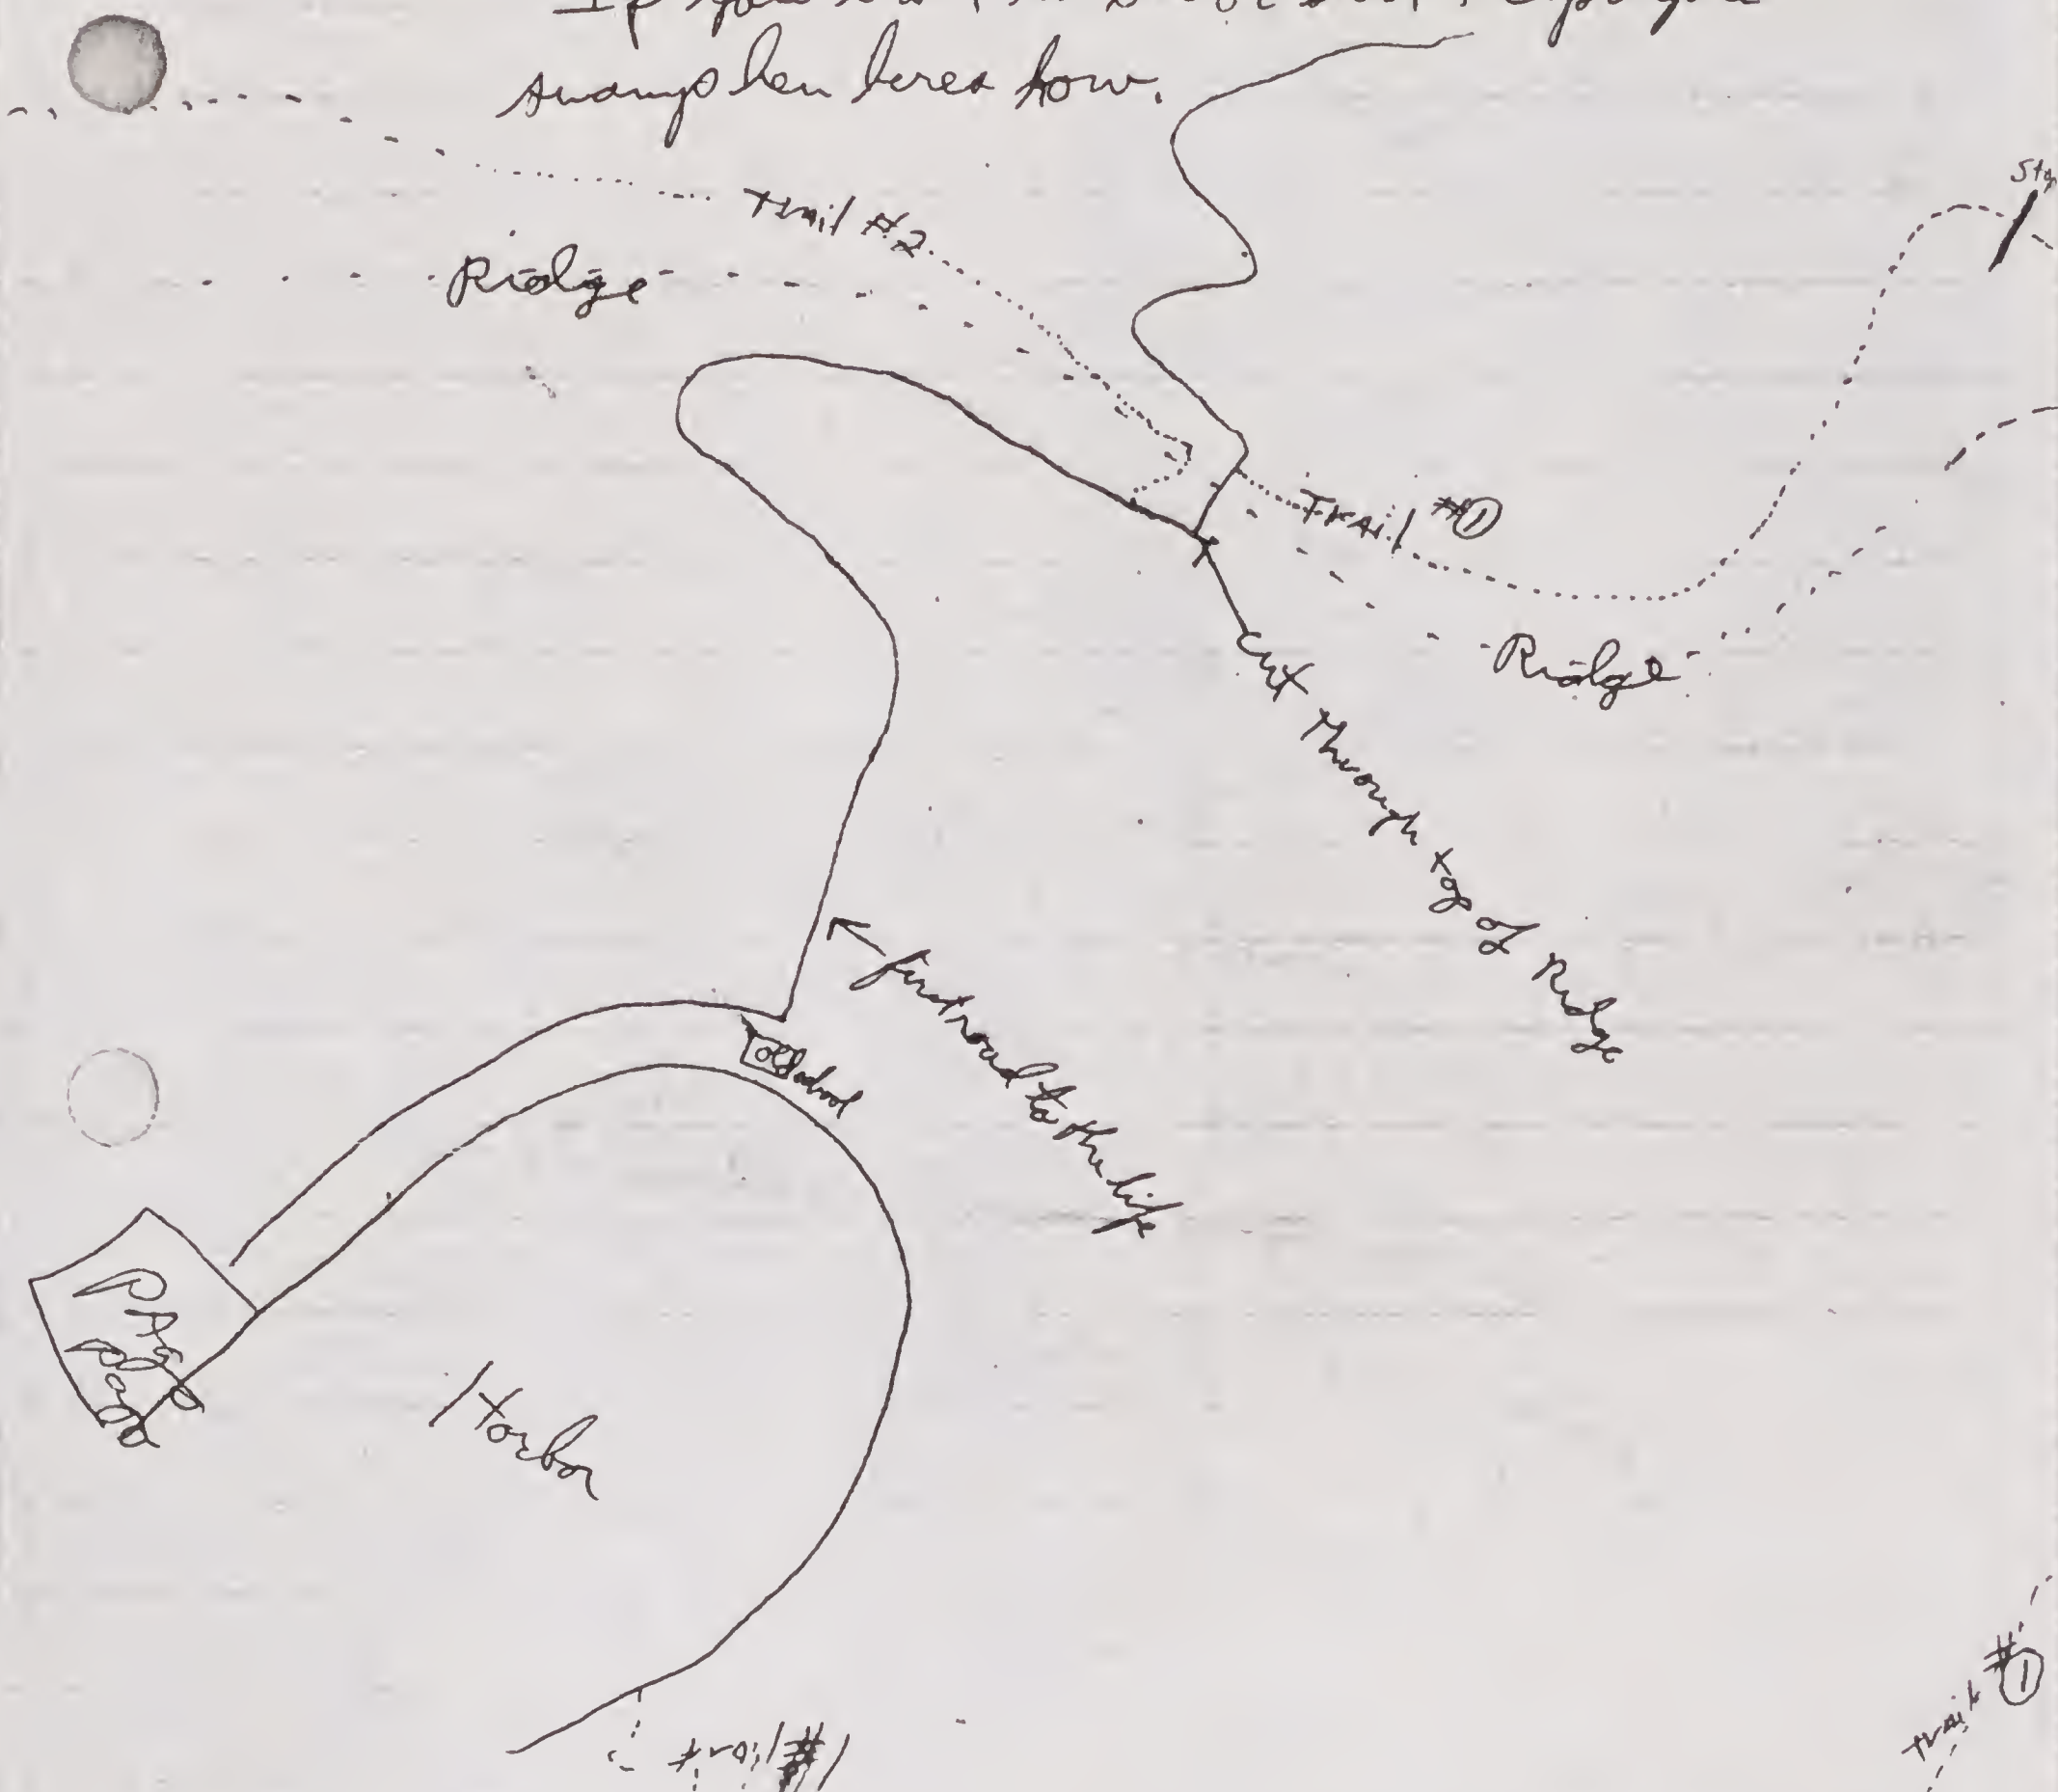 If you
swamp hen heres how.
Stop
Trail #2
Ridge
Trail #1
Ridge
Cut Through top of Ridge
first road to the lift
old school
Harbor
trail #1
trail #1